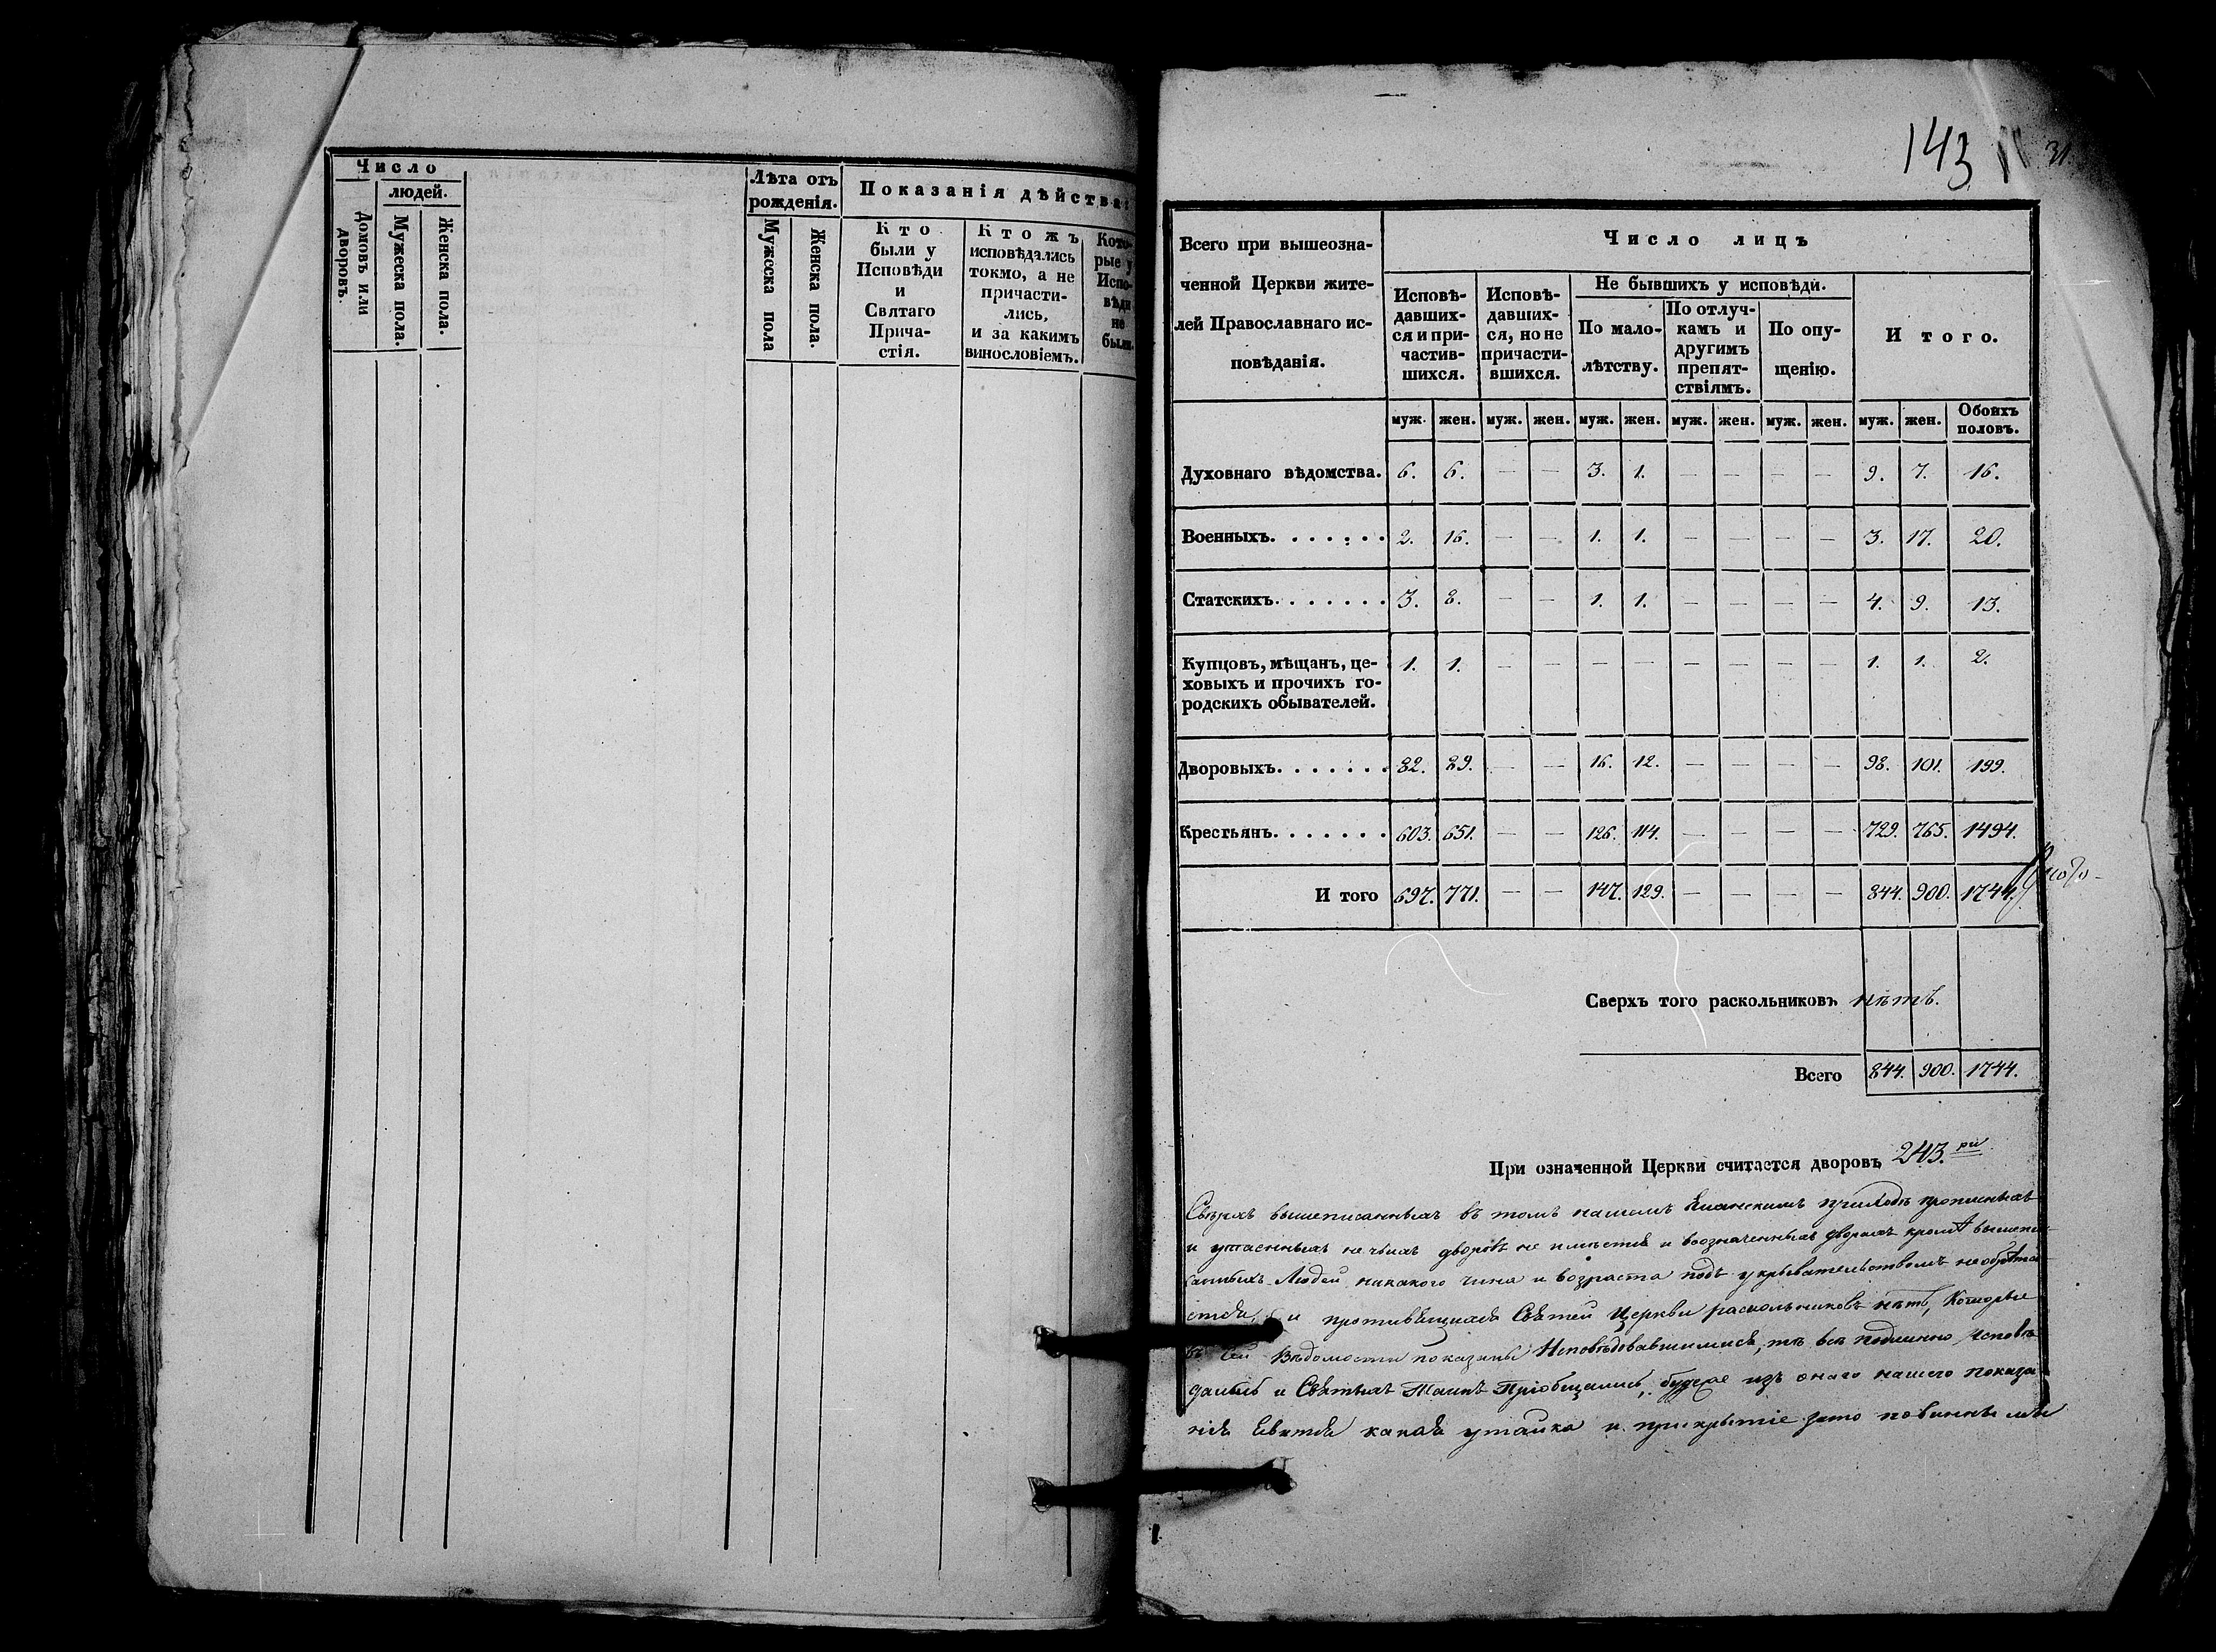 Число
людей.
Домовъ или дворовъ.
Мужеска пола.
Женска пола.
Лѣта отъ
рожденія.
Мужеска пола
Женска пола.
Показанія дѣйства:
Кто
были у
Исповѣди
и
Святаго
Прича-
стія.
Ктожъ
исповѣдались
токмо, а не
причасти-
лись,
и за какимъ
винословіемъ.
Кото-
рые у
Испо-
вѣди
не
были.
143
31.
Всего при вышеозна-
ченной Церкви жите-
лей Православнаго ис-
повѣданія.
Число лицъ
Исповѣ-
давших-
ся и при-
частив-
шихся.
Исповѣ-
давших-
ся, но не
причасти-
вшихся.
Не бывшихъ у исповѣди.
По мало-
лѣтству.
По отлуч-
камъ и
другимъ
препят-
ствіямъ.
По опу-
щенію.
Итого.
муж. жен. муж. жен. муж. жен. муж. жен. муж. жен. муж. жен. Обоихъ половъ.
Духовнаго вѣдомства. 6. 6. — — 3. 1. — — — — 9. 7. 16.
Военныхъ. . . . . . . 2. 16. — — 1. 1. — — — — 3. 17. 20.
Статскихъ. . . . . . . 3. 8. — — 1. 1. — — — — 4. 9. 13.
Купцовъ, мѣщанъ, це- 1. 1. — — — — — — — — 1. 1. 2.
ховыхъ и прочихъ го-
родскихъ обывателей.
Дворовыхъ. . . . . . . 82. 89. — — 16. 12. — — — — 98. 101. 199.
Крестьянъ. . . . . . . 603. 651. — — 126. 114. — — — — 729. 765. 1494.
И того 697. 771. — — 147. 129. — — — — 844. 900. 1744.
Сверхъ того раскольниковъ нѣтъ.
Всего 844. 900. 1744.
При означенной Церкви считается дворовъ 243.ри
Сверхъ вышеписанныхъ въ томъ нашемъ приходѣ прописныхъ
и утаенныхъ не чьихъ дворовъ не имѣется и возначенныхъ дворахъ кромѣ вышепи-
санныхъ Людей никакого чина и возраста подъ укрывательствомъ необрѣтае-
тся, и противящихся Святей Церкви раскольниковъ нѣтъ, Которые
въ сей Вѣдомости показаны Исповѣдовавшимися, тѣ всѣ подлинно исповѣ-
дались и Святыхъ Таинъ Пріобщались, будеже изъ онаго нашего показа-
нія Явится какая утайка и прикрытіе зато повинны мы